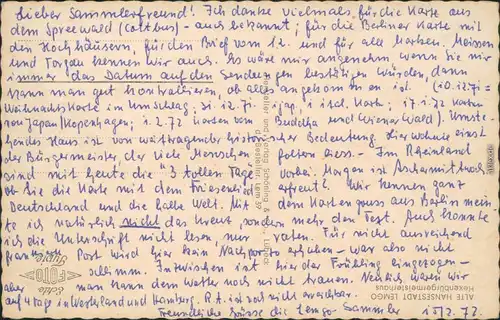 Lieber Sammlerfreund! Ich danke vielmals für die Karte aus
dem Spreewald (Cottbus) - auch bekannt; für die Berliner Karte mit
den Hochhäusern, für den Brief vom 12. und für alle Marken. Meissen
und Torgau kennen wir auch. Es wäre mir angenehm, wenn Sie mir
immer das Datum auf den Sendungen bestätigen würden, dann
kann man gut kontrollieren, ob alles angekommen ist. (10.12.71 =
Weihnachtskarte im Umschlag; 31.12.71 jap. 1 ital. Karte; 17.1.72 Karten
von Japan/Kopenhagen; 1.2.72 Karten vom Buddha und Wienerwald). Umste-
hendes Haus ist von weittragender historischer Bedeutung. Hier wohnte einst
der Bürgermeister, der viele Menschen foltern liess. - Im Rheinland
sind mit heute die 3 tollen Tage vorbei. Morgen ist Aschermittwoch.
Ob Sie die Karte mit dem Friesenlied erfreut? Wir kennen ganz
Deutschland und die halbe Welt. Mit dem Kartengruss aus Berlin meinte
ich natürlich nicht das Kreuz, sondern mehr den Text. Auch konnte
ich die Unterschrift nicht lesen, nur raten. Für nicht ausreichend
Port wird hier kein Nachporto erhoben - war also nicht
schlimm. Inzwischen ist hier der Frühling eingezogen -
aber man kann dem Wetter noch nicht trauen. Neulich waren wir
auf 4 Tage in Westerland und Hamburg. R.t. ist noch nicht erreichbar.
Freundliche Grüsse die Lemgo-Sammler 15.2.72
ALTE HANSESTADT LEMGO
Hexenbürgermeisterhaus
Echte
FOTO